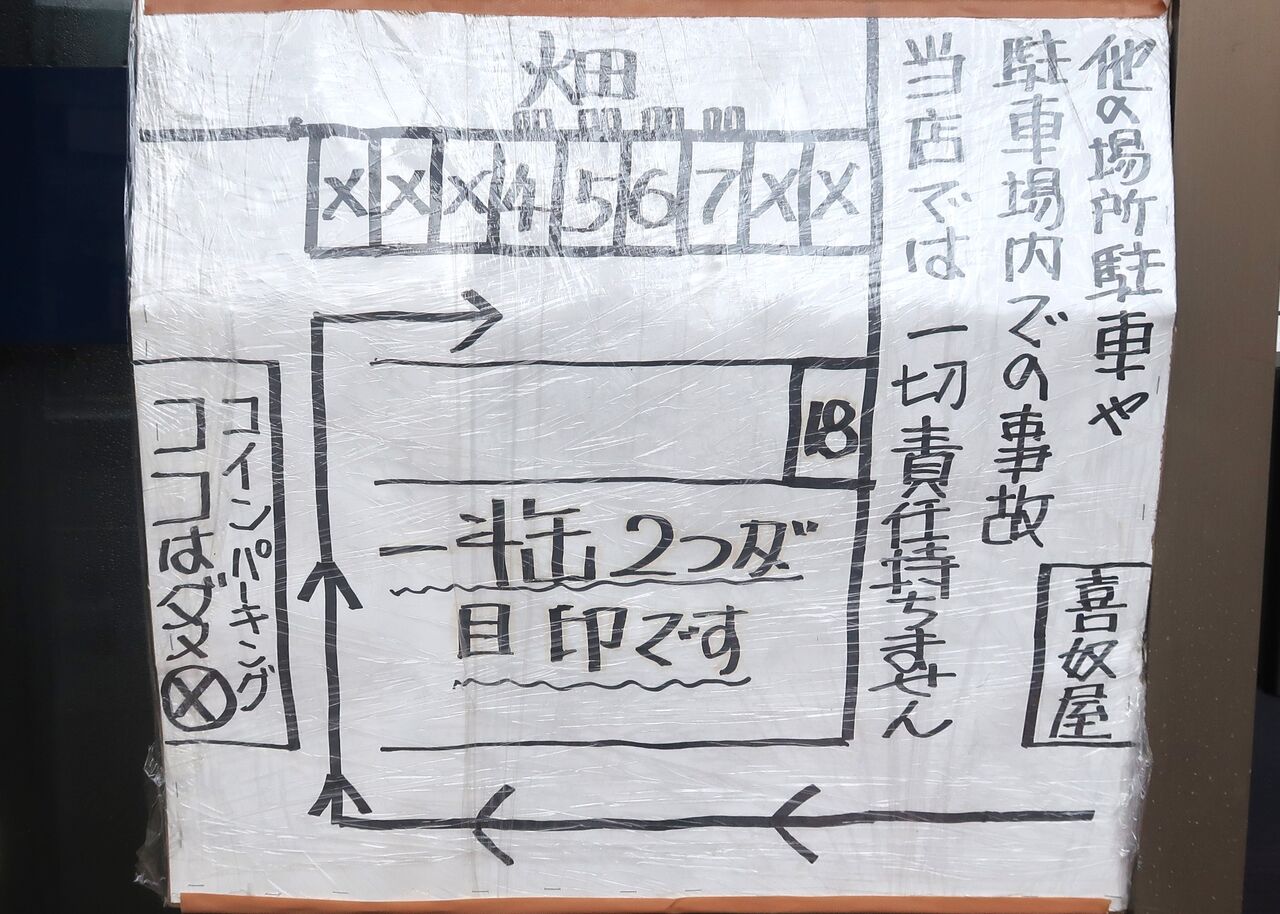 他の場所駐車や
駐車場内での事故
当店では 一切責任持ちません
畑
X X X 4 5 6 7 X X
18
一斗缶 2つが
目印です
コインパーキング
ココはダメ
X
喜奴屋